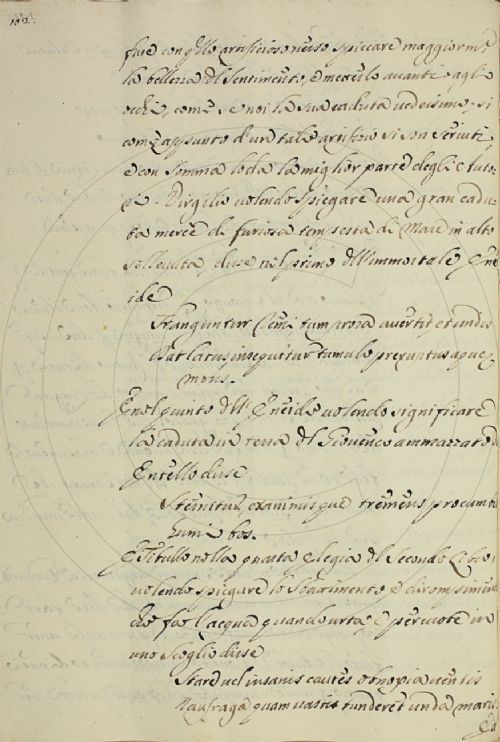 102.
fare con q.llo artificioso verso spiccare maggiorm.te
la bellezza del Sentimento, e metterlo avanti agli
occhi, come se noi la sua caduta vedessimo; si
come appunto d'un tale artificio si son serviti,
e con somma loda la miglior parte degli Auto-
ri. Virgilio volendo spiegare una gran cadu-
ta mercè di furiosa tempesta di Mare in alto
sollevata, disse nel primo dell'immortale Ene
ide
Franguntur remi tum prora avertit et undis
Dat latus, insequitur cumulo preruptus aquæ
mons.
E nel quinto dell'Eneide volendo significare
la caduta in terra del Giovenco ammazzato da
Entello disse
Sternitur, exanimisque tremens procumbit
humi bos.
E Tibullo nella quarta elegia del Secondo Libro,
volendo spiegare lo
che fa l'acqua quando urta, e percuote in
uno Scoglio disse
Stare vel insanis cautes obnoxia ventis
Naufraga quam vasti tunderet unda maris